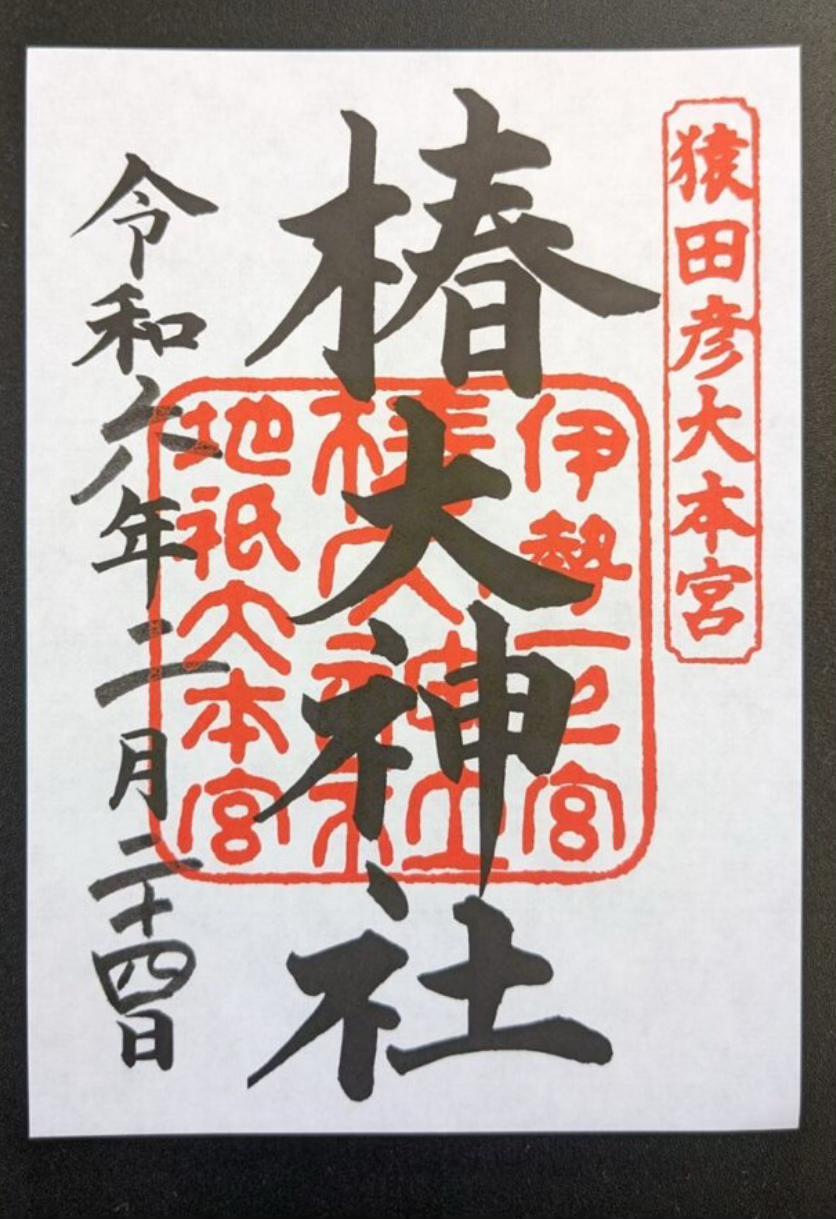 猿田彦大本宮
椿大神社
伊勢一之宮
椿大神社
地祇大本宮
令和六年二月二十四日